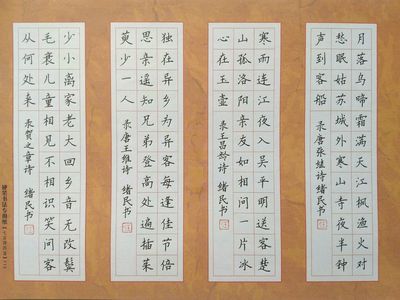 月落乌啼霜满天江枫渔火对
愁眠姑苏城外寒山寺夜半钟
声到客船 录唐张继诗 绪民书
寒雨连江夜入吴平明送客楚
山孤洛阳亲友如相问一片冰
心在玉壶 录王昌龄诗 绪民书
独在异乡为异客每逢佳节倍
思亲遥知兄弟登高处遍插茱
萸少一人 录唐王维诗 绪民书
少小离家老大回乡音无改鬓
毛衰儿童相见不相识笑问客
从何处来 录贺之章诗 绪民书
硬笔书法专用纸